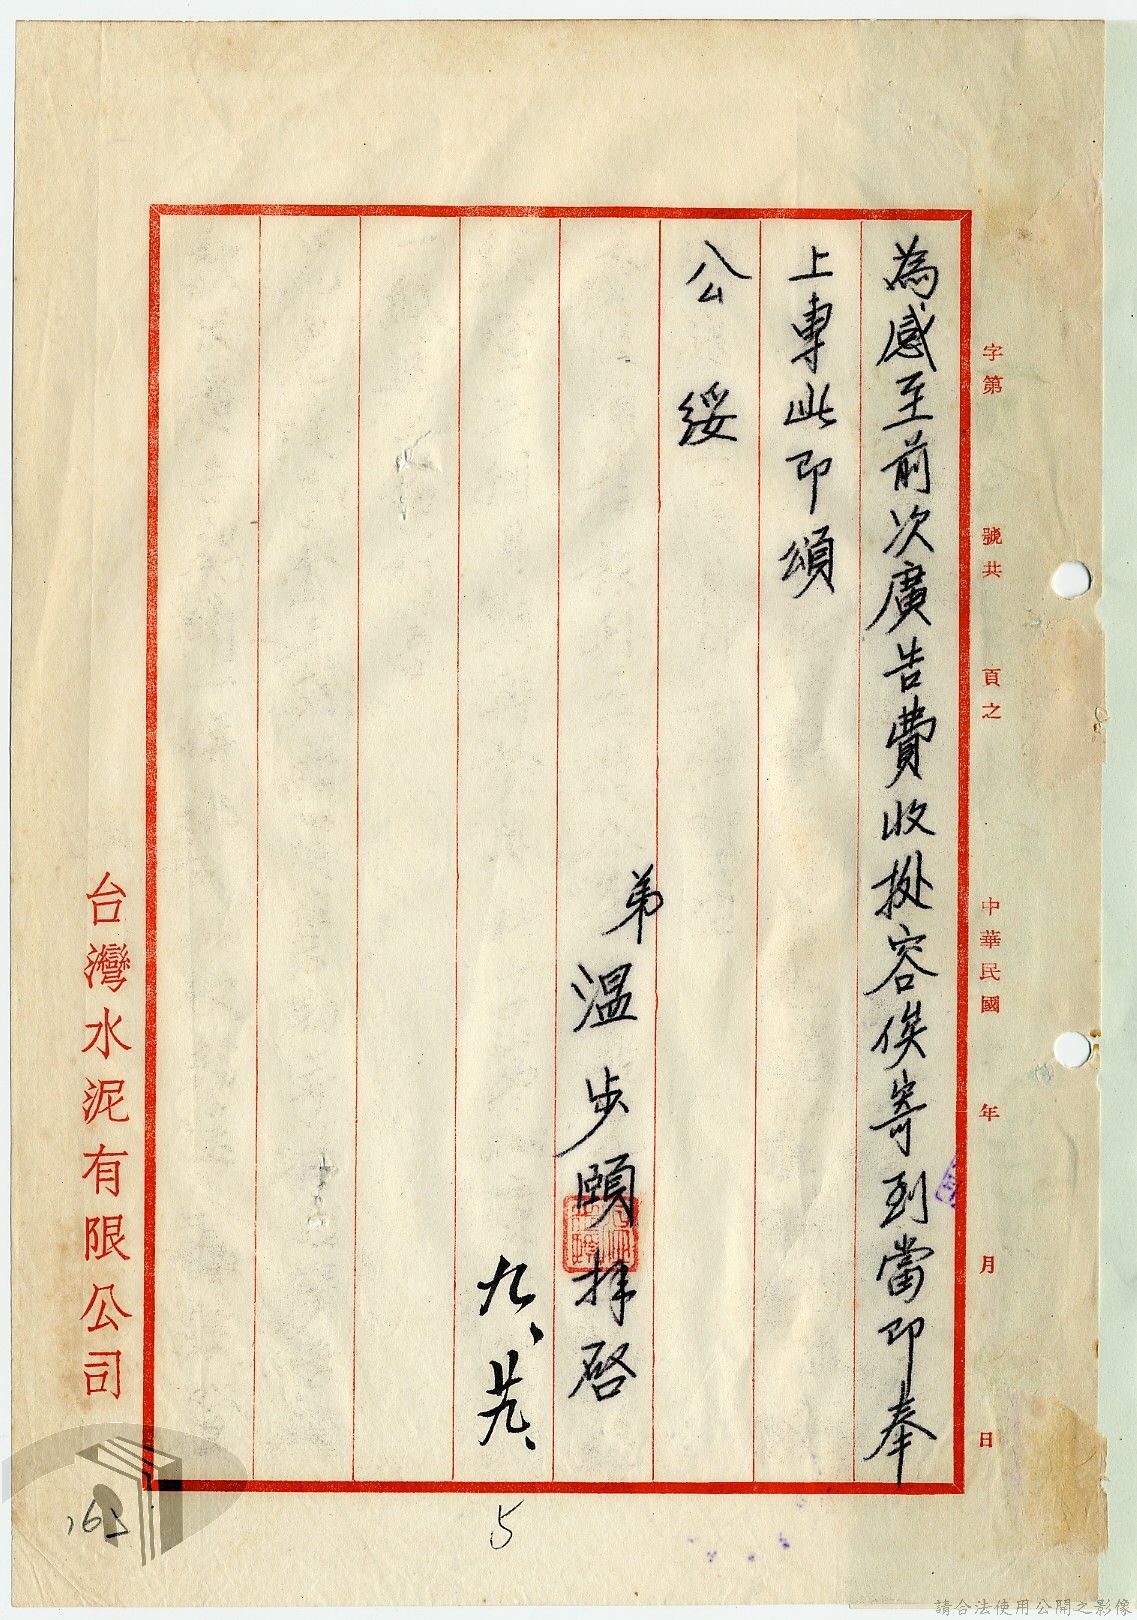 字第　號共　頁之　中華民國　年　月　日
為感至前次廣告費收據容俟寄到當即奉
上專此即頌
公綏
弟溫步頤拜啓
九、廿九、
台灣水泥有限公司
5
請合法使用公開之影像